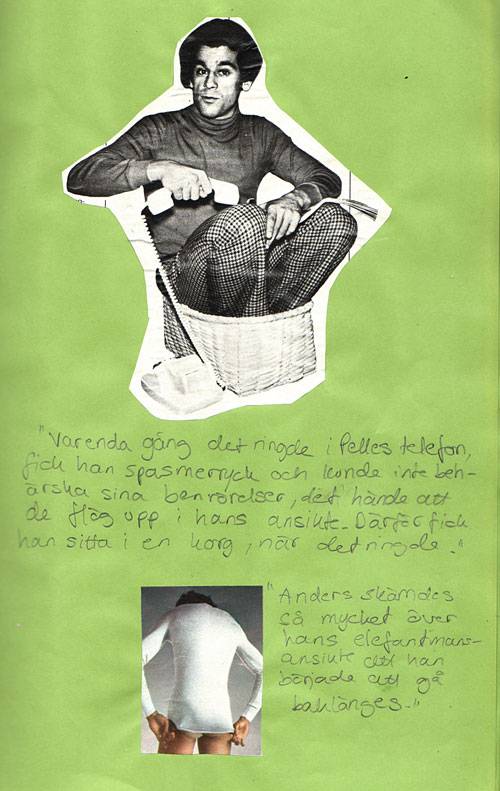 "Varenda gång det ringde i Pelles telefon,
fick han spasmerryck och kunde inte beh-
ärska sina benrörelser, det hände att
de flög upp i hans ansikte. Därför fick
han sitta i en korg, när det ringde."
"Anders skämdes
så mycket över
hans elefantmans-
ansikte att han
började att gå
baklänges."